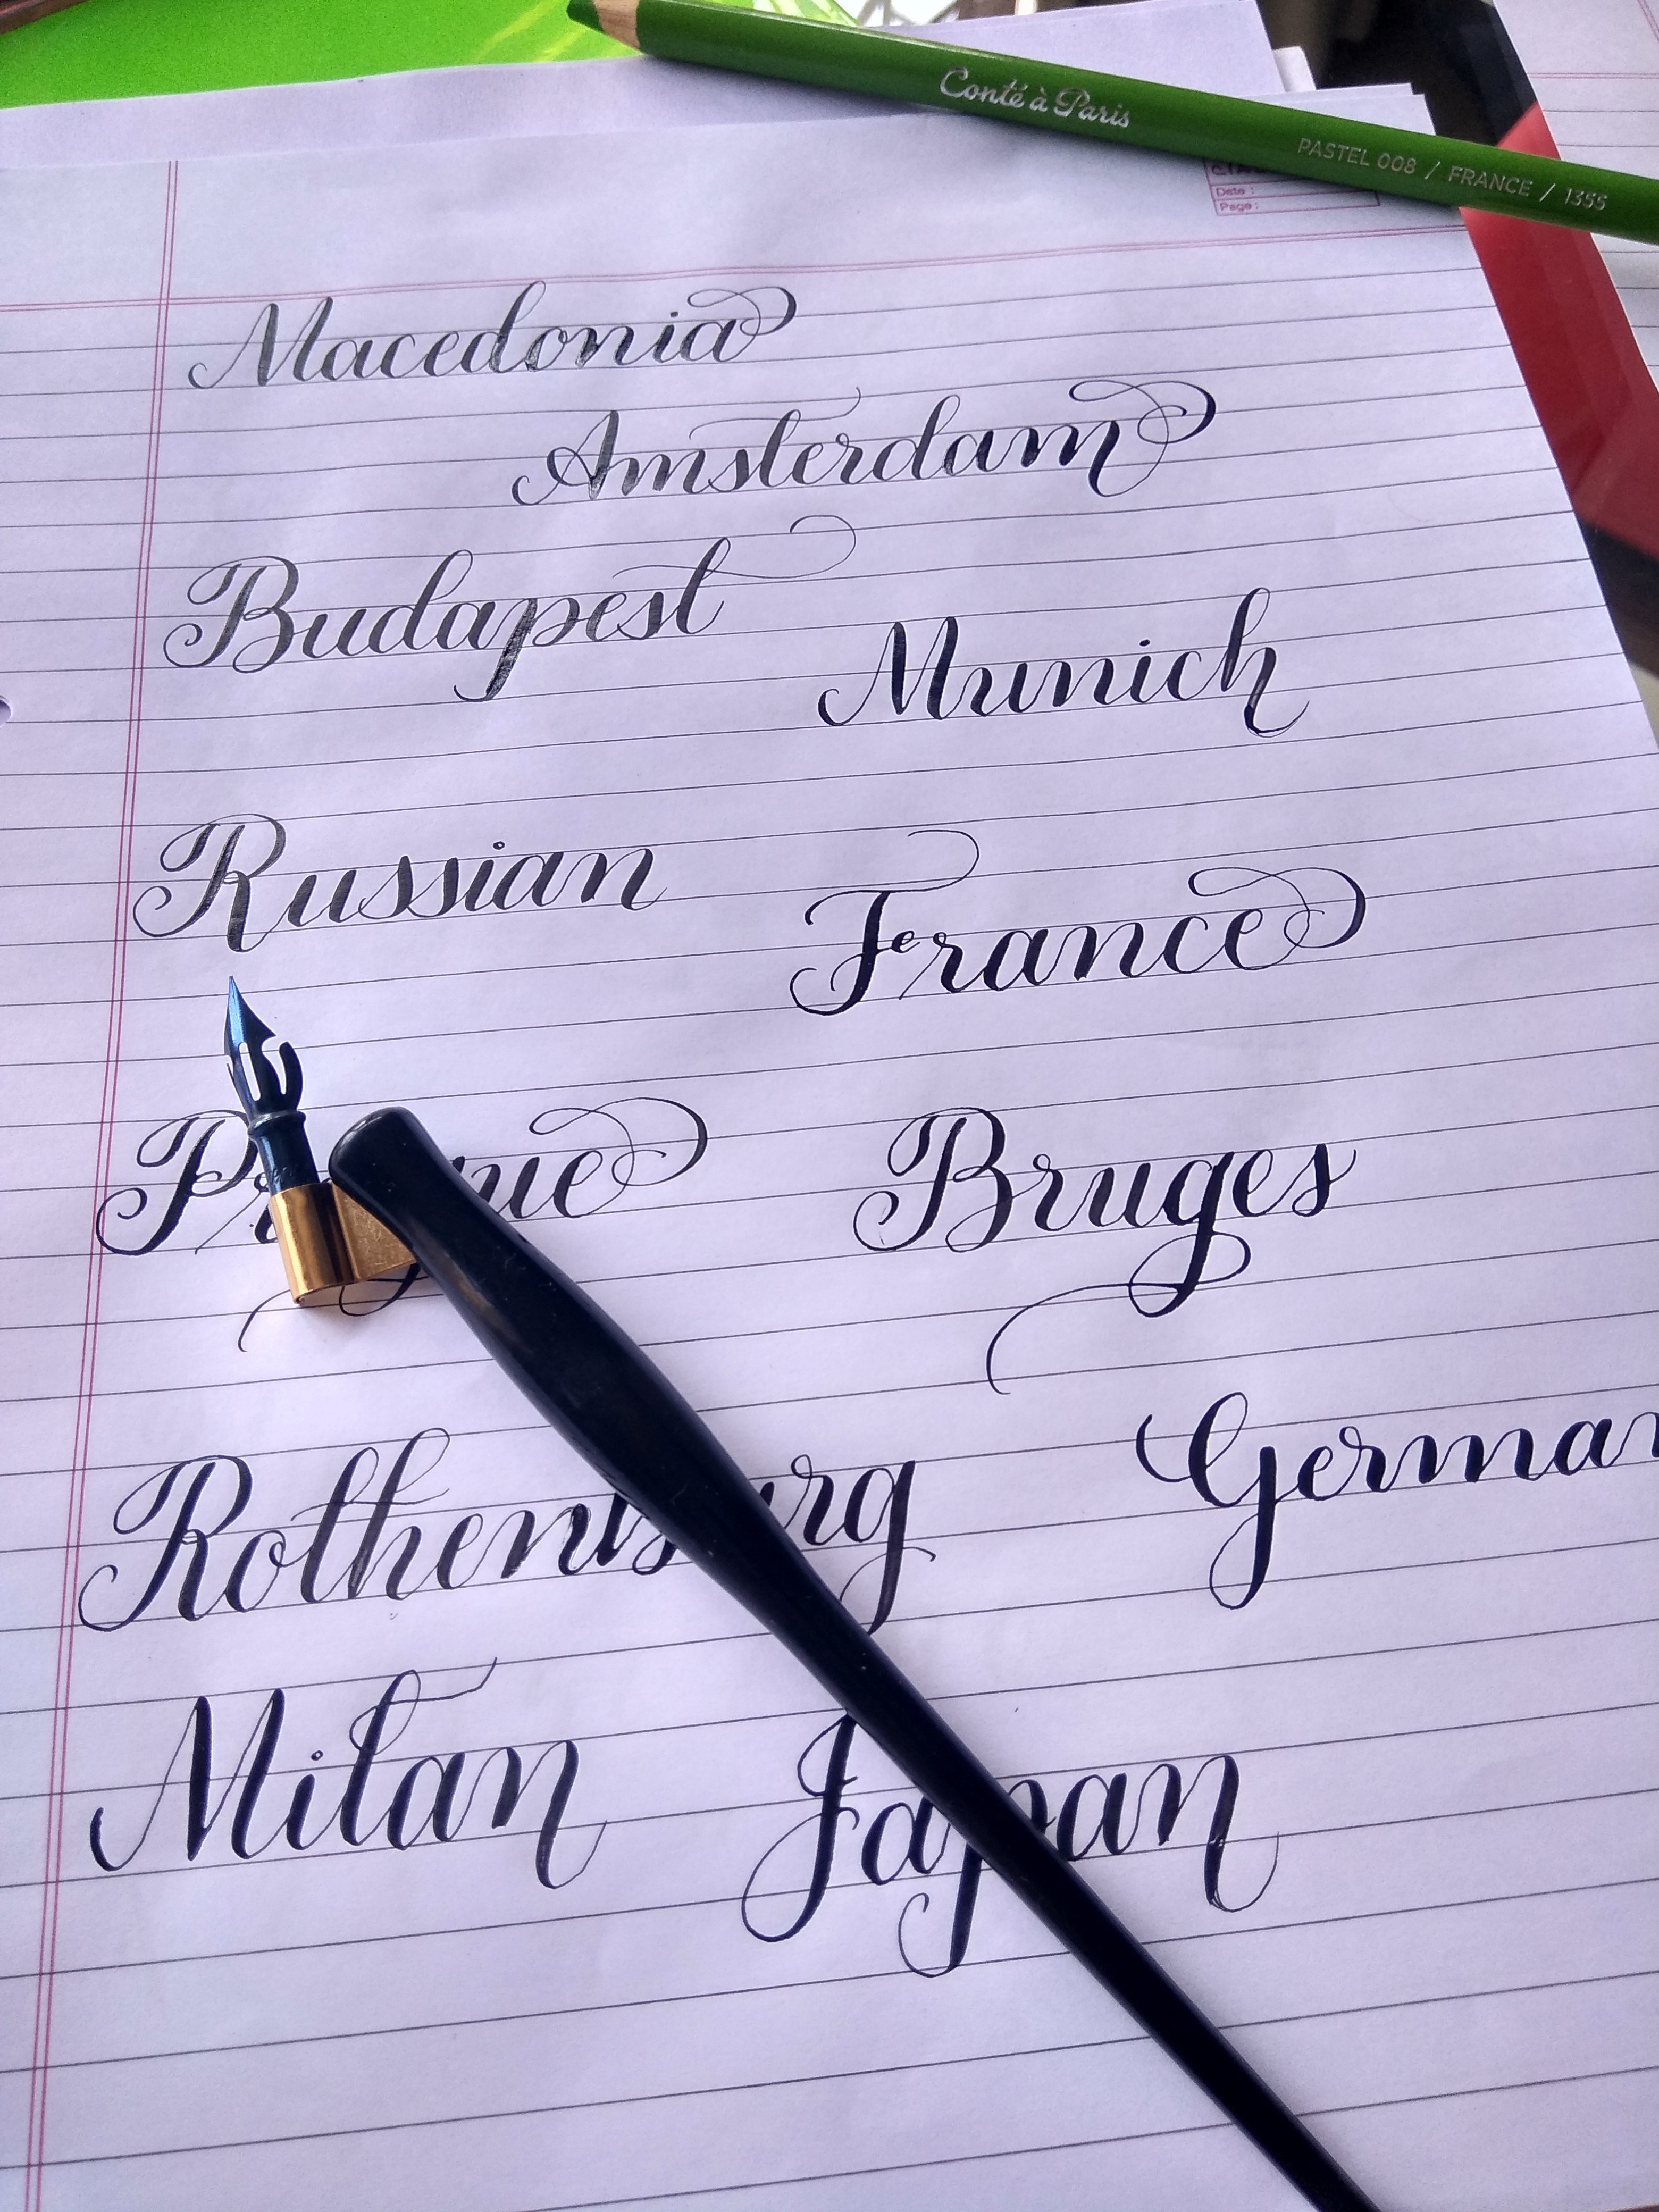 Conté à Paris PASTEL 008 / FRANCE / 1355
Date :
Page :
Macedonia
Amsterdam
Budapest
Munich
Russian
France
Prague Bruges
Rothenburg German
Milan Japan